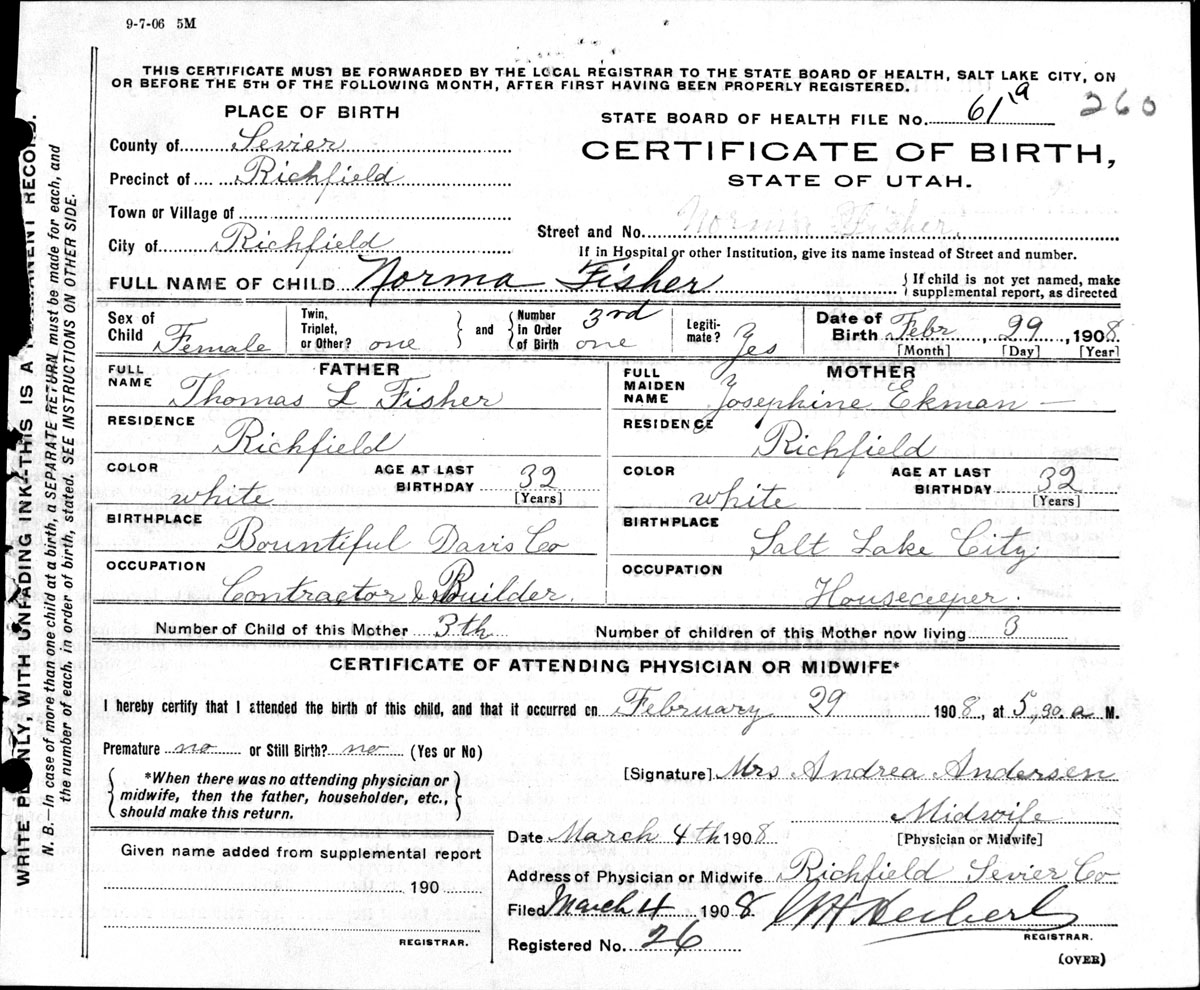 9-7-06 5M
THIS CERTIFICATE MUST BE FORWARDED BY THE LOCAL REGISTRAR TO THE STATE BOARD OF HEALTH, SALT LAKE CITY, ON
OR BEFORE THE 5TH OF THE FOLLOWING MONTH, AFTER FIRST HAVING BEEN PROPERLY REGISTERED.
PLACE OF BIRTH
STATE BOARD OF HEALTH FILE No. 61 a 260
County of Sevier
CERTIFICATE OF BIRTH,
Precinct of Richfield
STATE OF UTAH.
Town or Village of
Street and No. Fisher
City of Richfield
If in Hospital or other Institution, give its name instead of Street and number.
FULL NAME OF CHILD Norma Fisher
{ If child is not yet named, make
supplemental report, as directed
Sex of Child Female
Twin, Triplet, or Other? one } and { Number In Order of Birth 3rd one
Legitimate? Yes
Date of Birth Febr 29, 1908
[Month] [Day] [Year]
FATHER
FULL NAME Thomas L Fisher
RESIDENCE Richfield
COLOR white
AGE AT LAST BIRTHDAY 32
[Years]
BIRTHPLACE Bountiful Davis Co
OCCUPATION Contractor & Builder.
MOTHER
FULL MAIDEN NAME Josephine Ekman —
RESIDENCE Richfield
COLOR white
AGE AT LAST BIRTHDAY 32
[Years]
BIRTHPLACE Salt Lake City
OCCUPATION Housekeeper.
Number of Child of this Mother 3th
Number of children of this Mother now living 3
CERTIFICATE OF ATTENDING PHYSICIAN OR MIDWIFE*
I hereby certify that I attended the birth of this child, and that it occurred on February 29 1908, at 5,30.a M.
Premature no or Still Birth? no (Yes or No)
{ *When there was no attending physician or
midwife, then the father, householder, etc.,
should make this return. }
[Signature] Mrs Andrea Andersen
Midwife
[Physician or Midwife]
Date March 4th 1908
Address of Physician or Midwife Richfield Sevier Co
Filed March 4 1908
REGISTRAR.
Registered No. 26
(OVER)
Given name added from supplemental report
190
REGISTRAR.
WRITE PLAINLY, WITH UNFADING INK—THIS IS A PERMANENT RECORD.
N. B.—In case of more than one child at a birth, a SEPARATE RETURN must be made for each, and
the number of each, in order of birth, stated. SEE INSTRUCTIONS ON OTHER SIDE.